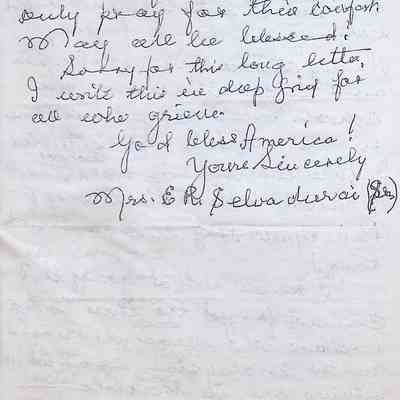 only pray for their comfort.
May all be blessed!
Sorry for this long letter,
I write this in deep grief for
all who grieve.
God bless America!
Yours Sincerely
Mrs. E R. Selvadurai (Sr)